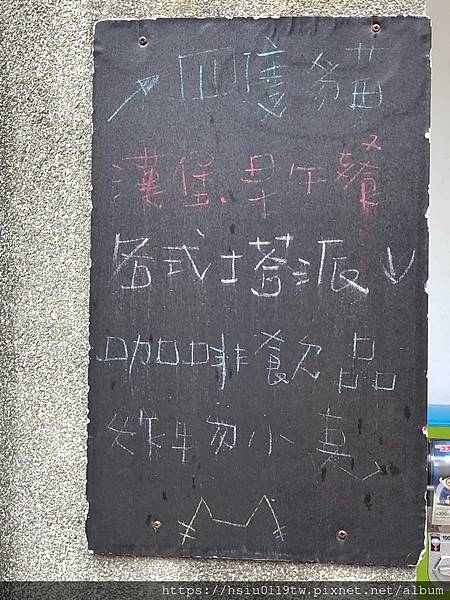 ↗ 四度貓
漢堡.早午餐
各式塔派↓
咖啡飲品
炸物小
https://hsiu0119tw.pixnet.net/album